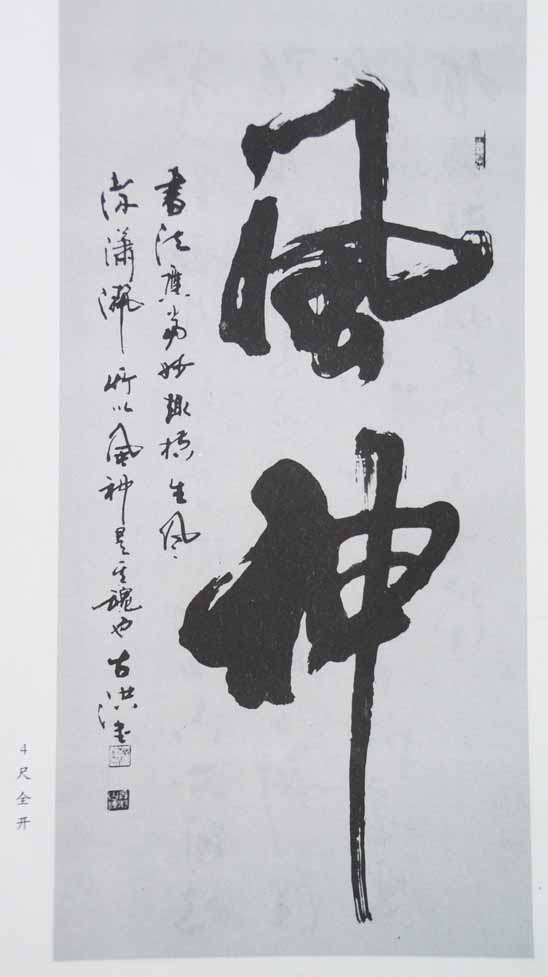 風神
書法應當妙趣橫生风
采瀟灑所以風神是其魂也古洪書
4尺全开